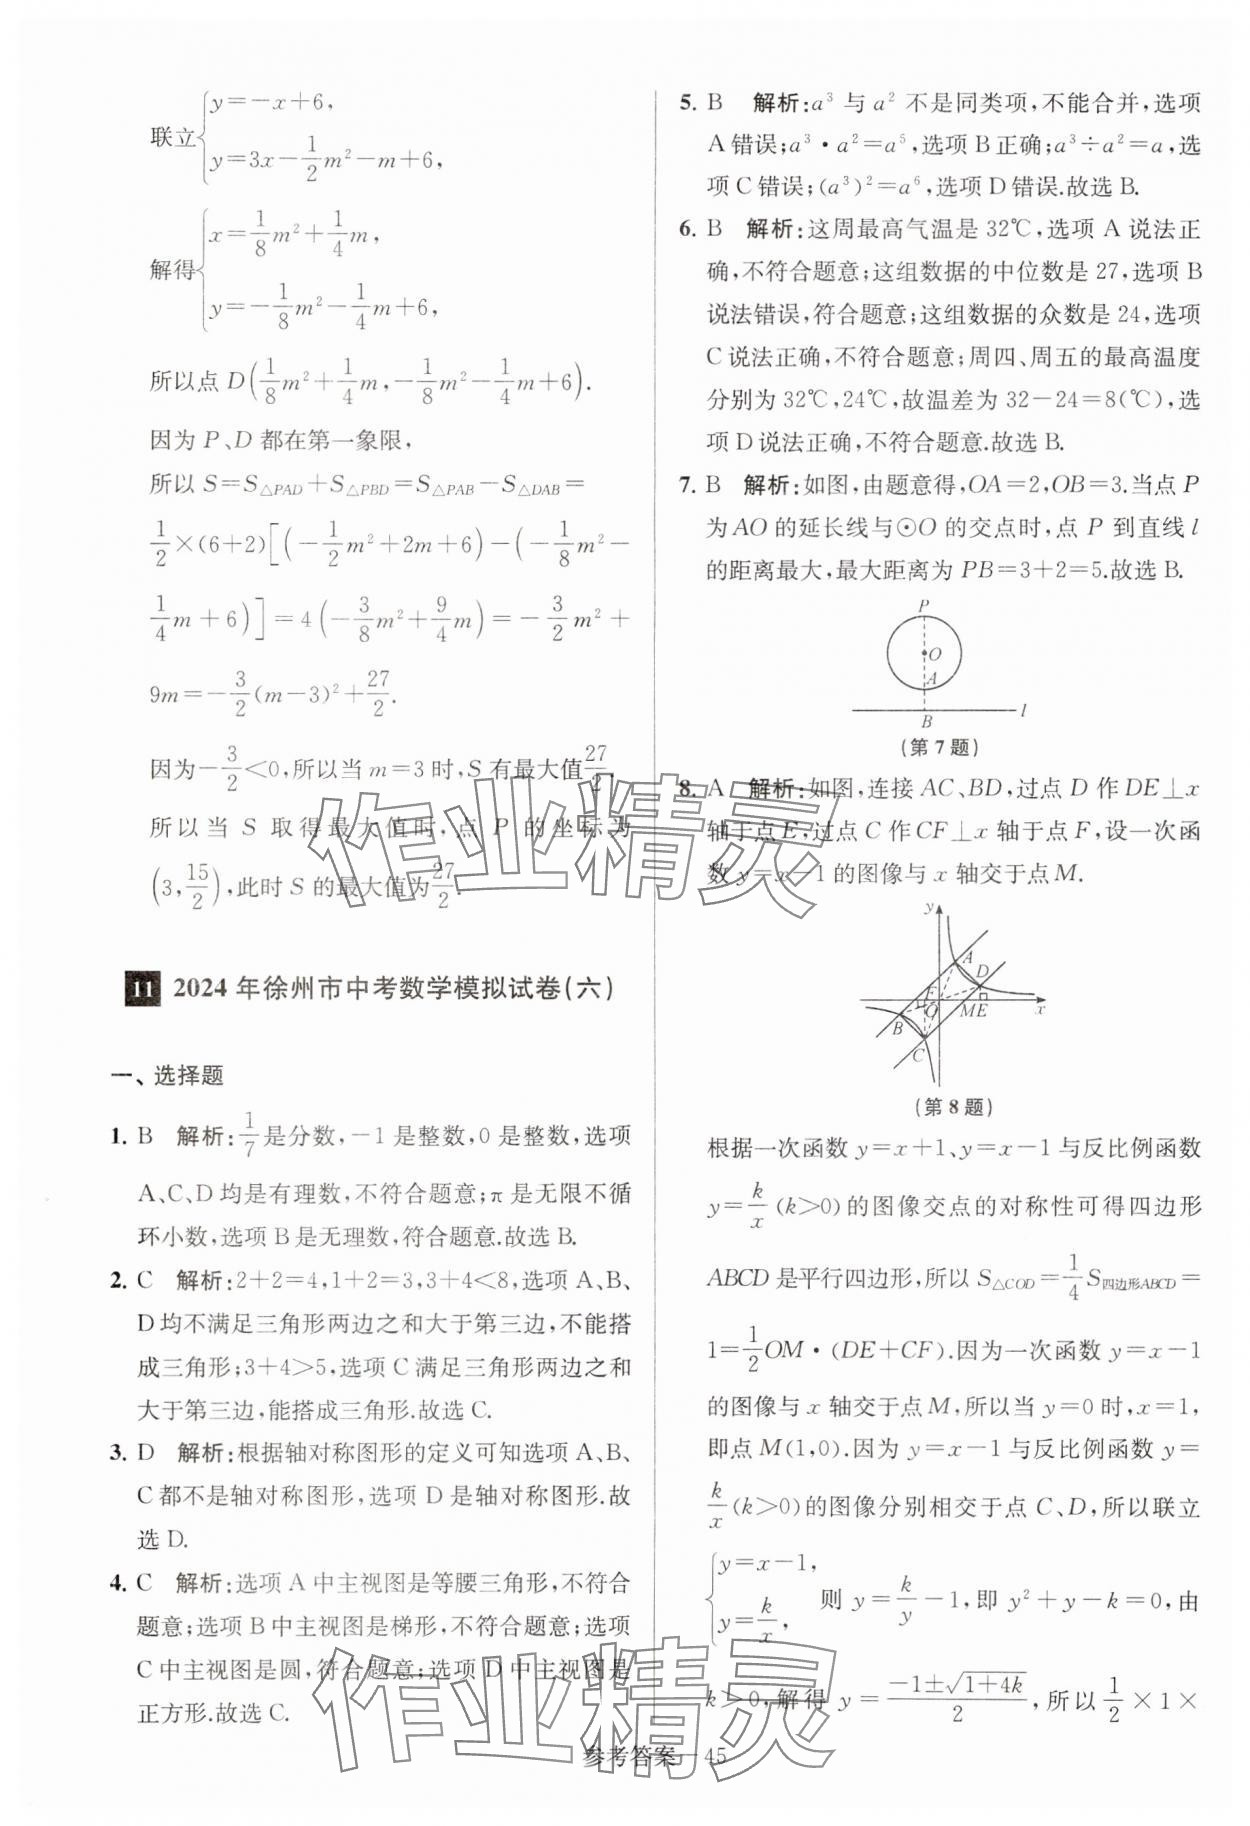 联立{y=-x+6,
y=3x-1/2m²-m+6,
解得{x=1/8m²+1/4m,
y=-1/8m²-1/4m+6,
所以点 D(1/8m²+1/4m,-1/8m²-1/4m+6).
因为 P、D 都在第一象限,
所以 S=S△PAD+S△PBD=S△PAB-S△DAB=
1/2×(6+2)[(-1/2m²+2m+6)-(-1/8m²-
1/4m+6)]=4(-3/8m²+9/4m)=-3/2m²+
9m=-3/2(m-3)²+27/2.
因为-3/2<0,所以当 m=3 时,S 有最大值27/2,
所以当 S 取得最大值时,点 P 的坐标为
(3,15/2),此时 S 的最大值为27/2.
11 2024年徐州市中考数学模拟试卷(六)
一、选择题
1. B 解析:1/7是分数,-1 是整数,0 是整数,选项
A、C、D 均是有理数,不符合题意;π 是无限不循
环小数,选项 B 是无理数,符合题意.故选 B.
2. C 解析:2+2=4,1+2=3,3+4<8,选项 A、B、
D 均不满足三角形两边之和大于第三边,不能搭
成三角形;3+4>5,选项 C 满足三角形两边之和
大于第三边,能搭成三角形.故选 C.
3. D 解析:根据轴对称图形的定义可知选项 A、B、
C 都不是轴对称图形,选项 D 是轴对称图形.故
选 D.
4. C 解析:选项 A 中主视图是等腰三角形,不符合
题意;选项 B 中主视图是梯形,不符合题意;选项
C 中主视图是圆,符合题意;选项 D 中主视图是
正方形.故选 C.
5. B 解析:a³ 与 a² 不是同类项,不能合并,选项
A 错误;a³·a²=a⁵,选项 B 正确;a³÷a²=a,选
项 C 错误;(a³)²=a⁶,选项 D 错误.故选 B.
6. B 解析:这周最高气温是 32℃,选项 A 说法正
确,不符合题意;这组数据的中位数是 27,选项 B
说法错误,符合题意;这组数据的众数是 24,选项
C 说法正确,不符合题意;周四、周五的最高温度
分别为 32℃,24℃,故温差为 32-24=8(℃),选
项 D 说法正确,不符合题意.故选 B.
7. B 解析:如图,由题意得,OA=2,OB=3.当点 P
为 AO 的延长线与⊙O 的交点时,点 P 到直线 l
的距离最大,最大距离为 PB=3+2=5.故选 B.
P
O
A
B
l
(第 7 题)
8. A 解析:如图,连接 AC、BD,过点 D 作 DE⊥x
轴于点 E,过点 C 作 CF⊥x 轴于点 F,设一次函
数 y=x-1 的图像与 x 轴交于点 M.
y
A
D
F
O
ME
x
B
C
(第 8 题)
根据一次函数 y=x+1、y=x-1 与反比例函数
y=k/x(k>0)的图像交点的对称性可得四边形
ABCD 是平行四边形,所以 S△COD=1/4S四边形ABCD=
1=1/2OM·(DE+CF).因为一次函数 y=x-1
的图像与 x 轴交于点 M,所以当 y=0 时,x=1,
即点 M(1,0).因为 y=x-1 与反比例函数 y=
k/x(k>0)的图像分别相交于点 C、D,所以联立
{y=x-1,
y=k/x, 则 y=k/y-1,即 y²+y-k=0,由
k>0,解得 y=(-1±√(1+4k))/2,所以1/2×1×
参考答案 45
作业精灵
作业精灵